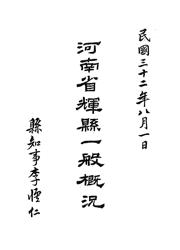 民國三十二年八月一日
河南省輝縣一般概況
縣知事李恆仁